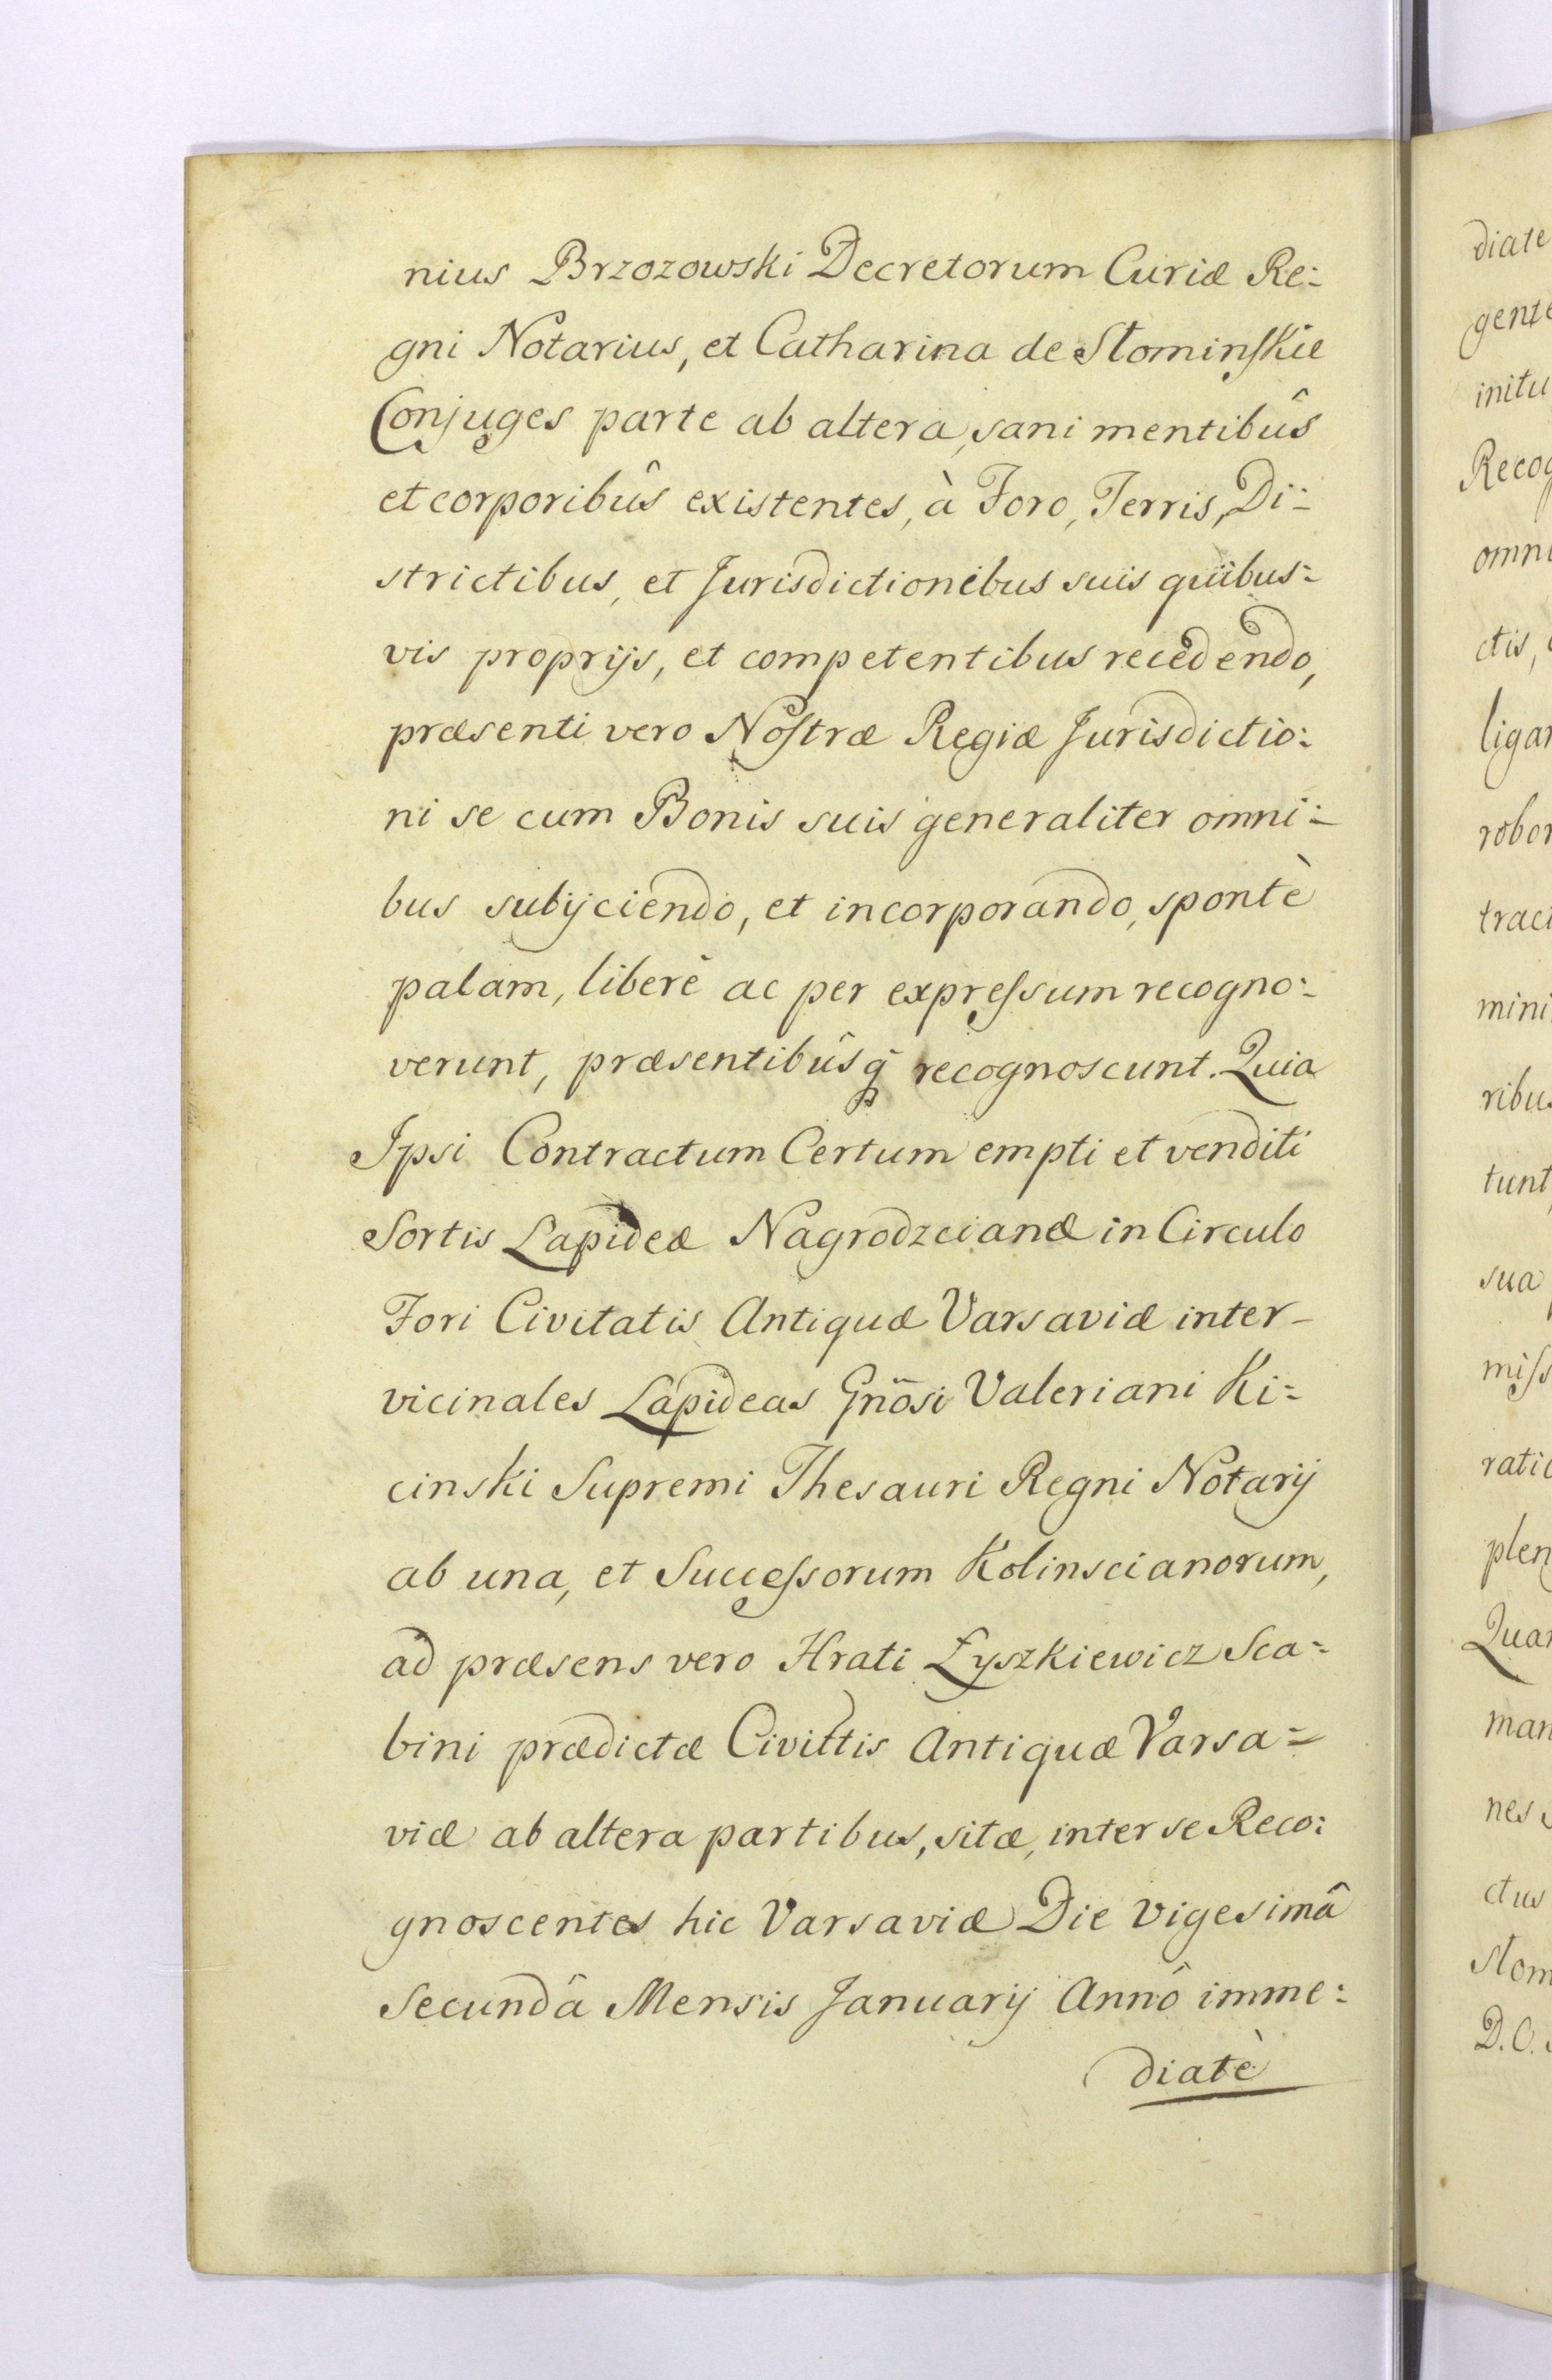 nius Brzozowski Decretorum Curiæ Re:
gni Notarius, et Catharina de Słominſkie
Conjuges parte ab altera, sani mentibûs
et corporibûs existentes, à Foro, Terris, Di:
strictibus, et Jurisdictionibus suis quibus:
vis proprijs, et competentibus recedendo,
præsenti vero Noſtræ Regiæ Jurisdictio:
ni se cum Bonis suis generaliter omni:
bus subijciendo, et incorporando, spontè
palam, liberè ac per expreſsum recogno:
verunt, præsentibûsq̃ recognoscunt. Quia
Ipsi Contractum Certum empti et venditi
Sortis Lapideæ Nagrodzcianæ in Circulo
Fori Civitatis Antiquæ Varsaviæ inter-
vicinales Lapideas Gñosi Valeriani Ki=
cinski Supremi Thesauri Regni Notarij
ab una, et Succeſsorum Kolinscianorum,
ad præsens vero Hrati Łyszkiewicz Sca=
bini prædictæ Civittis Antiquæ Varsa=
viæ ab altera partibus, sitæ, inter se Reco:
gnoscentes hic Varsaviæ Die vigesimâ
Secundâ Mensis Januarij Annô imme:
diatè
diate
gente
initu
Recog
omni
ctis,
ligar
robor
tract
mini
ribus
tunt
sua
miſs
ratio
plen
Quar
man
nes
ctus
Słom
D.O.